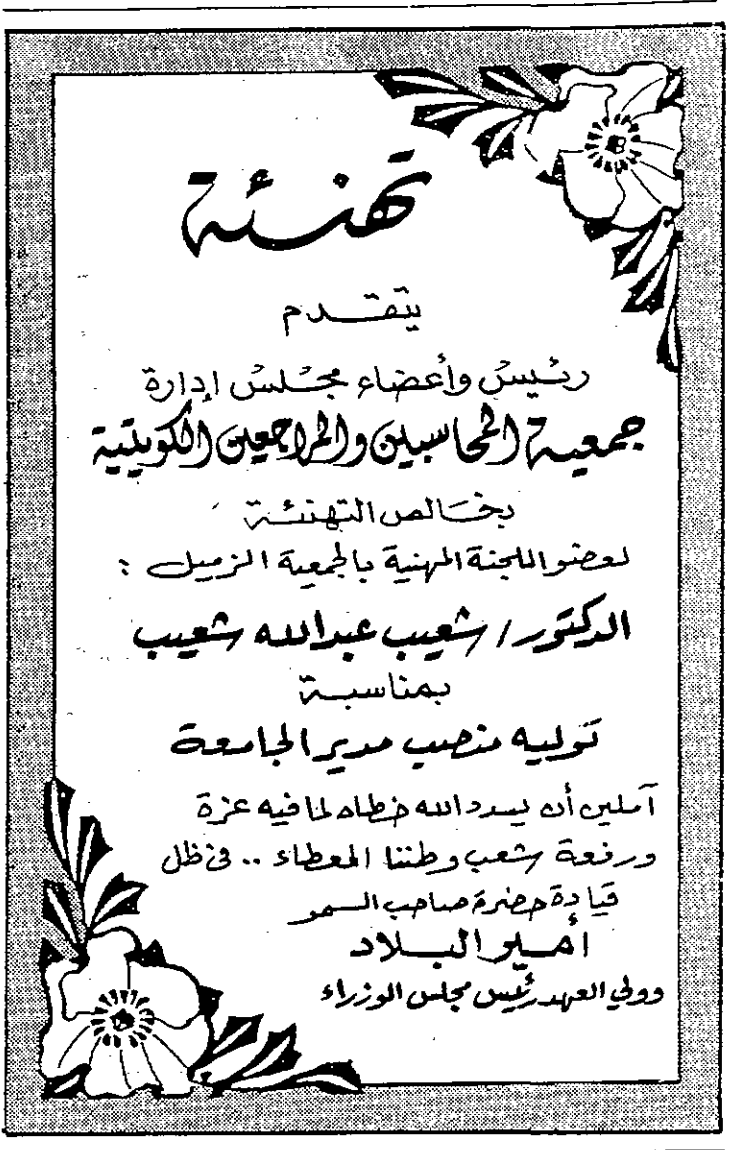 تهنئة
يتقدم
رئيس وأعضاء مجلس إدارة
جمعية المحاسبين والمراجعين الكويتية
بخالص التهنئة
لعضو اللجنة المهنية بالجمعية الزميل :
الدكتور / شعيب عبدالله شعيب
بمناسبة
توليه منصب مدير الجامعة
آملين أن يسدد الله خطاه لما فيه عزة
ورفعة شعب وطننا المعطاء .. في ظل
قيادة حضرة صاحب السمو
أمير البلاد
وولي العهد رئيس مجلس الوزراء